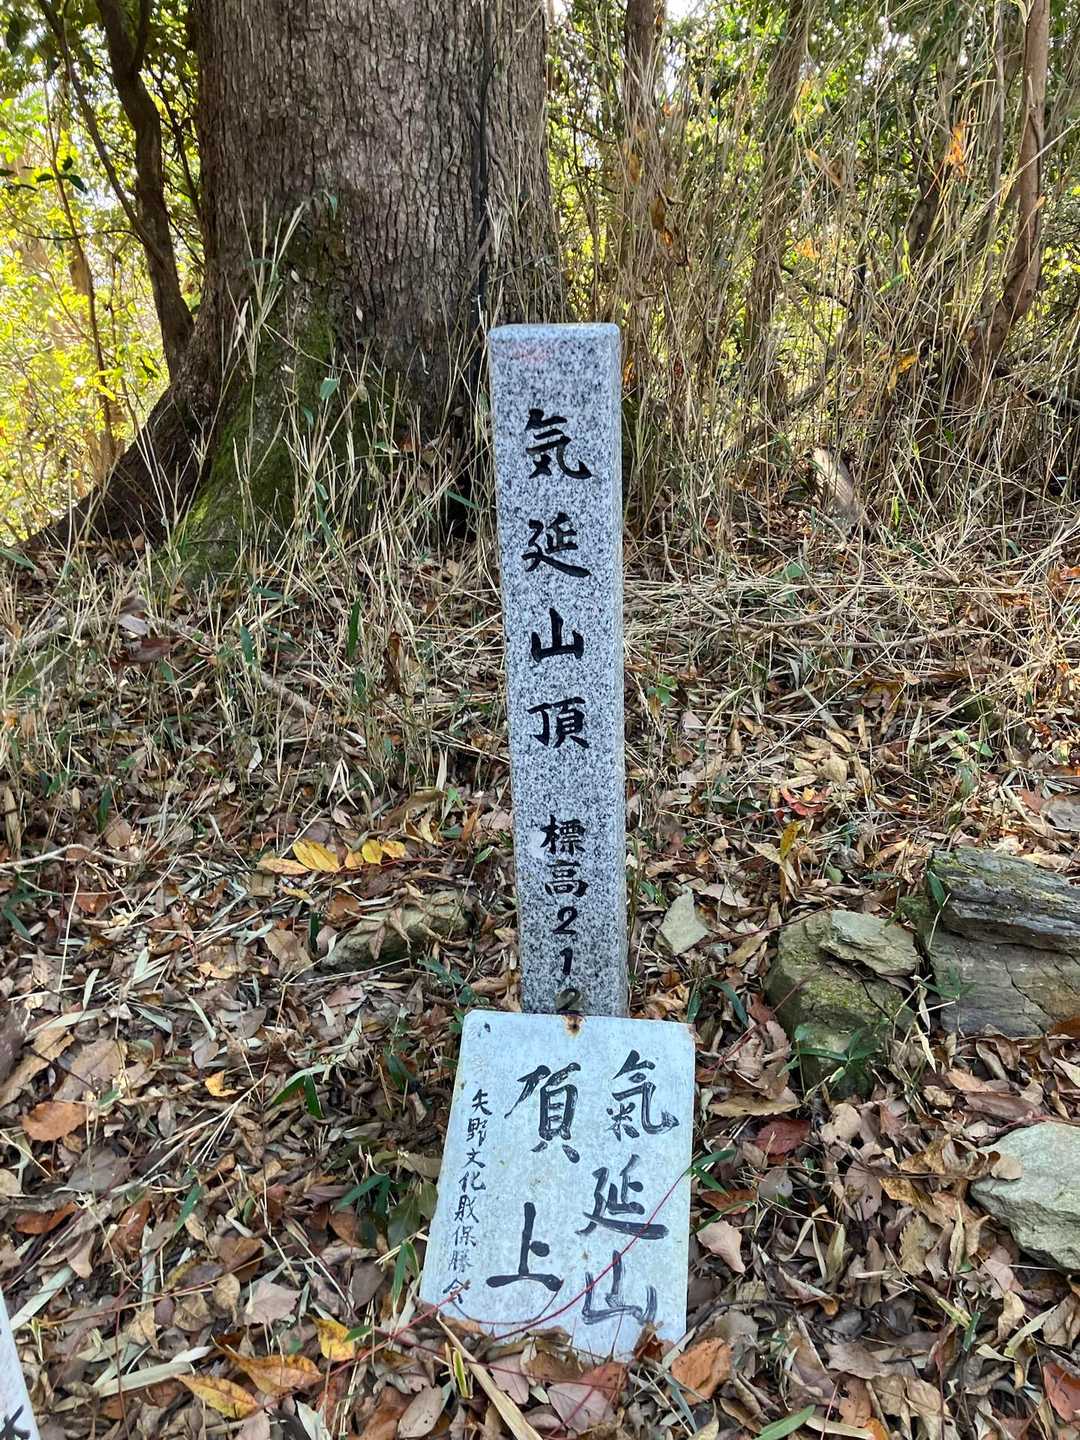 気延山頂 標高212
氣延山
頂上
矢野文化財保勝会